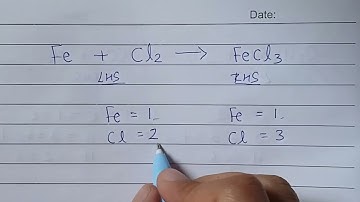 Date:
Fe + Cl₂ → FeCl₃
LHS RHS
Fe = 1 Fe = 1
Cl = 2 Cl = 3